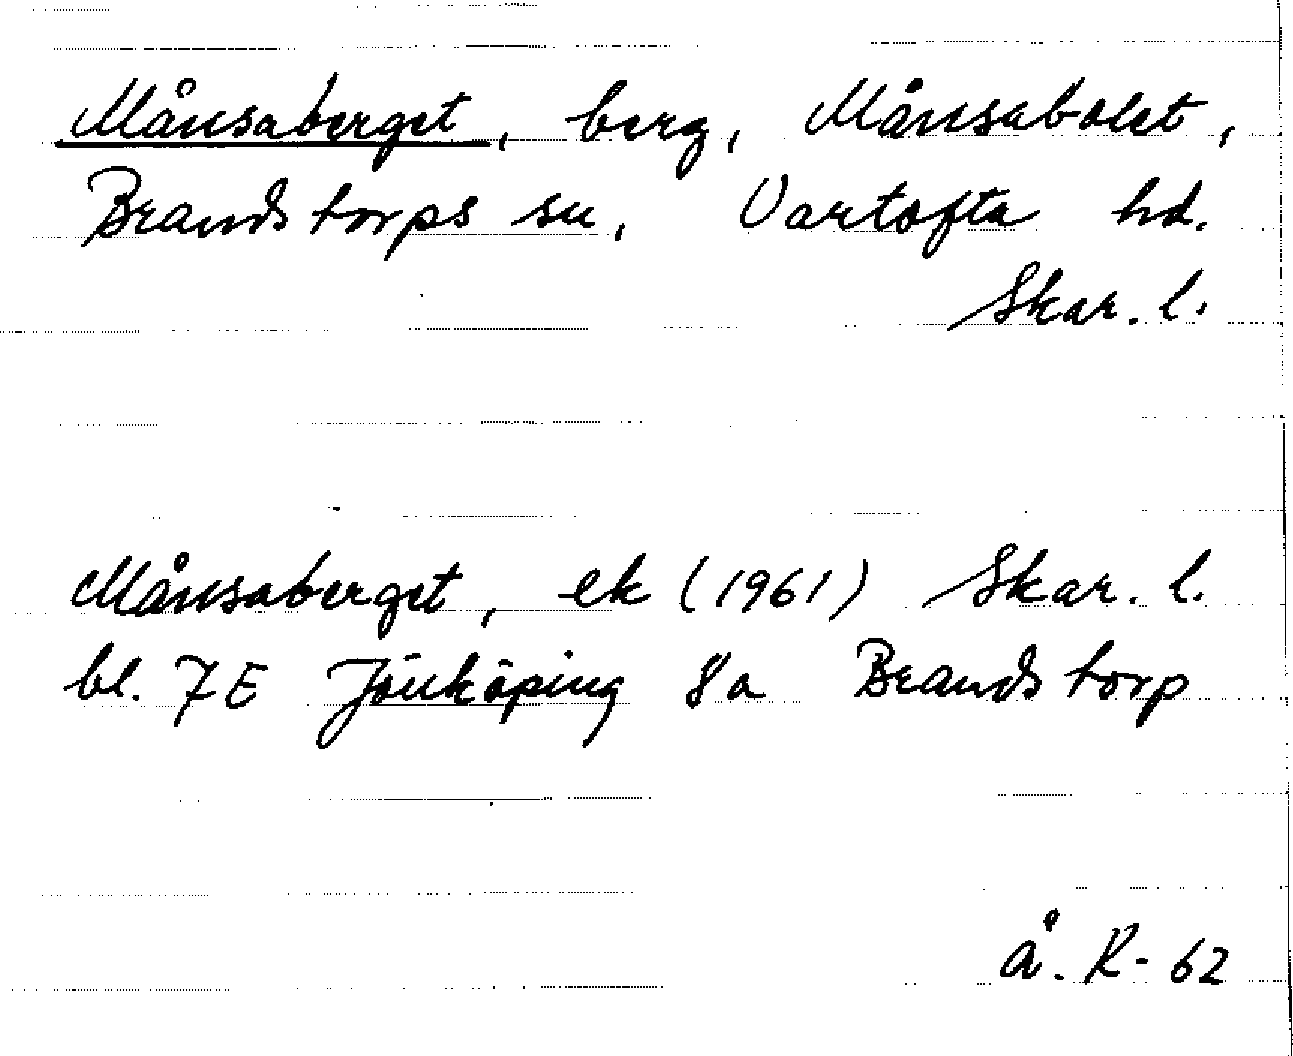 Månsaberget, berg, Månsabolet,
Brandstorps sn, Vartofta hd.
Skar. l.
Månsaberget, ek (1961) Skar. l.
bl. 7E Jönköping 8a Brandstorp
Å. R- 62